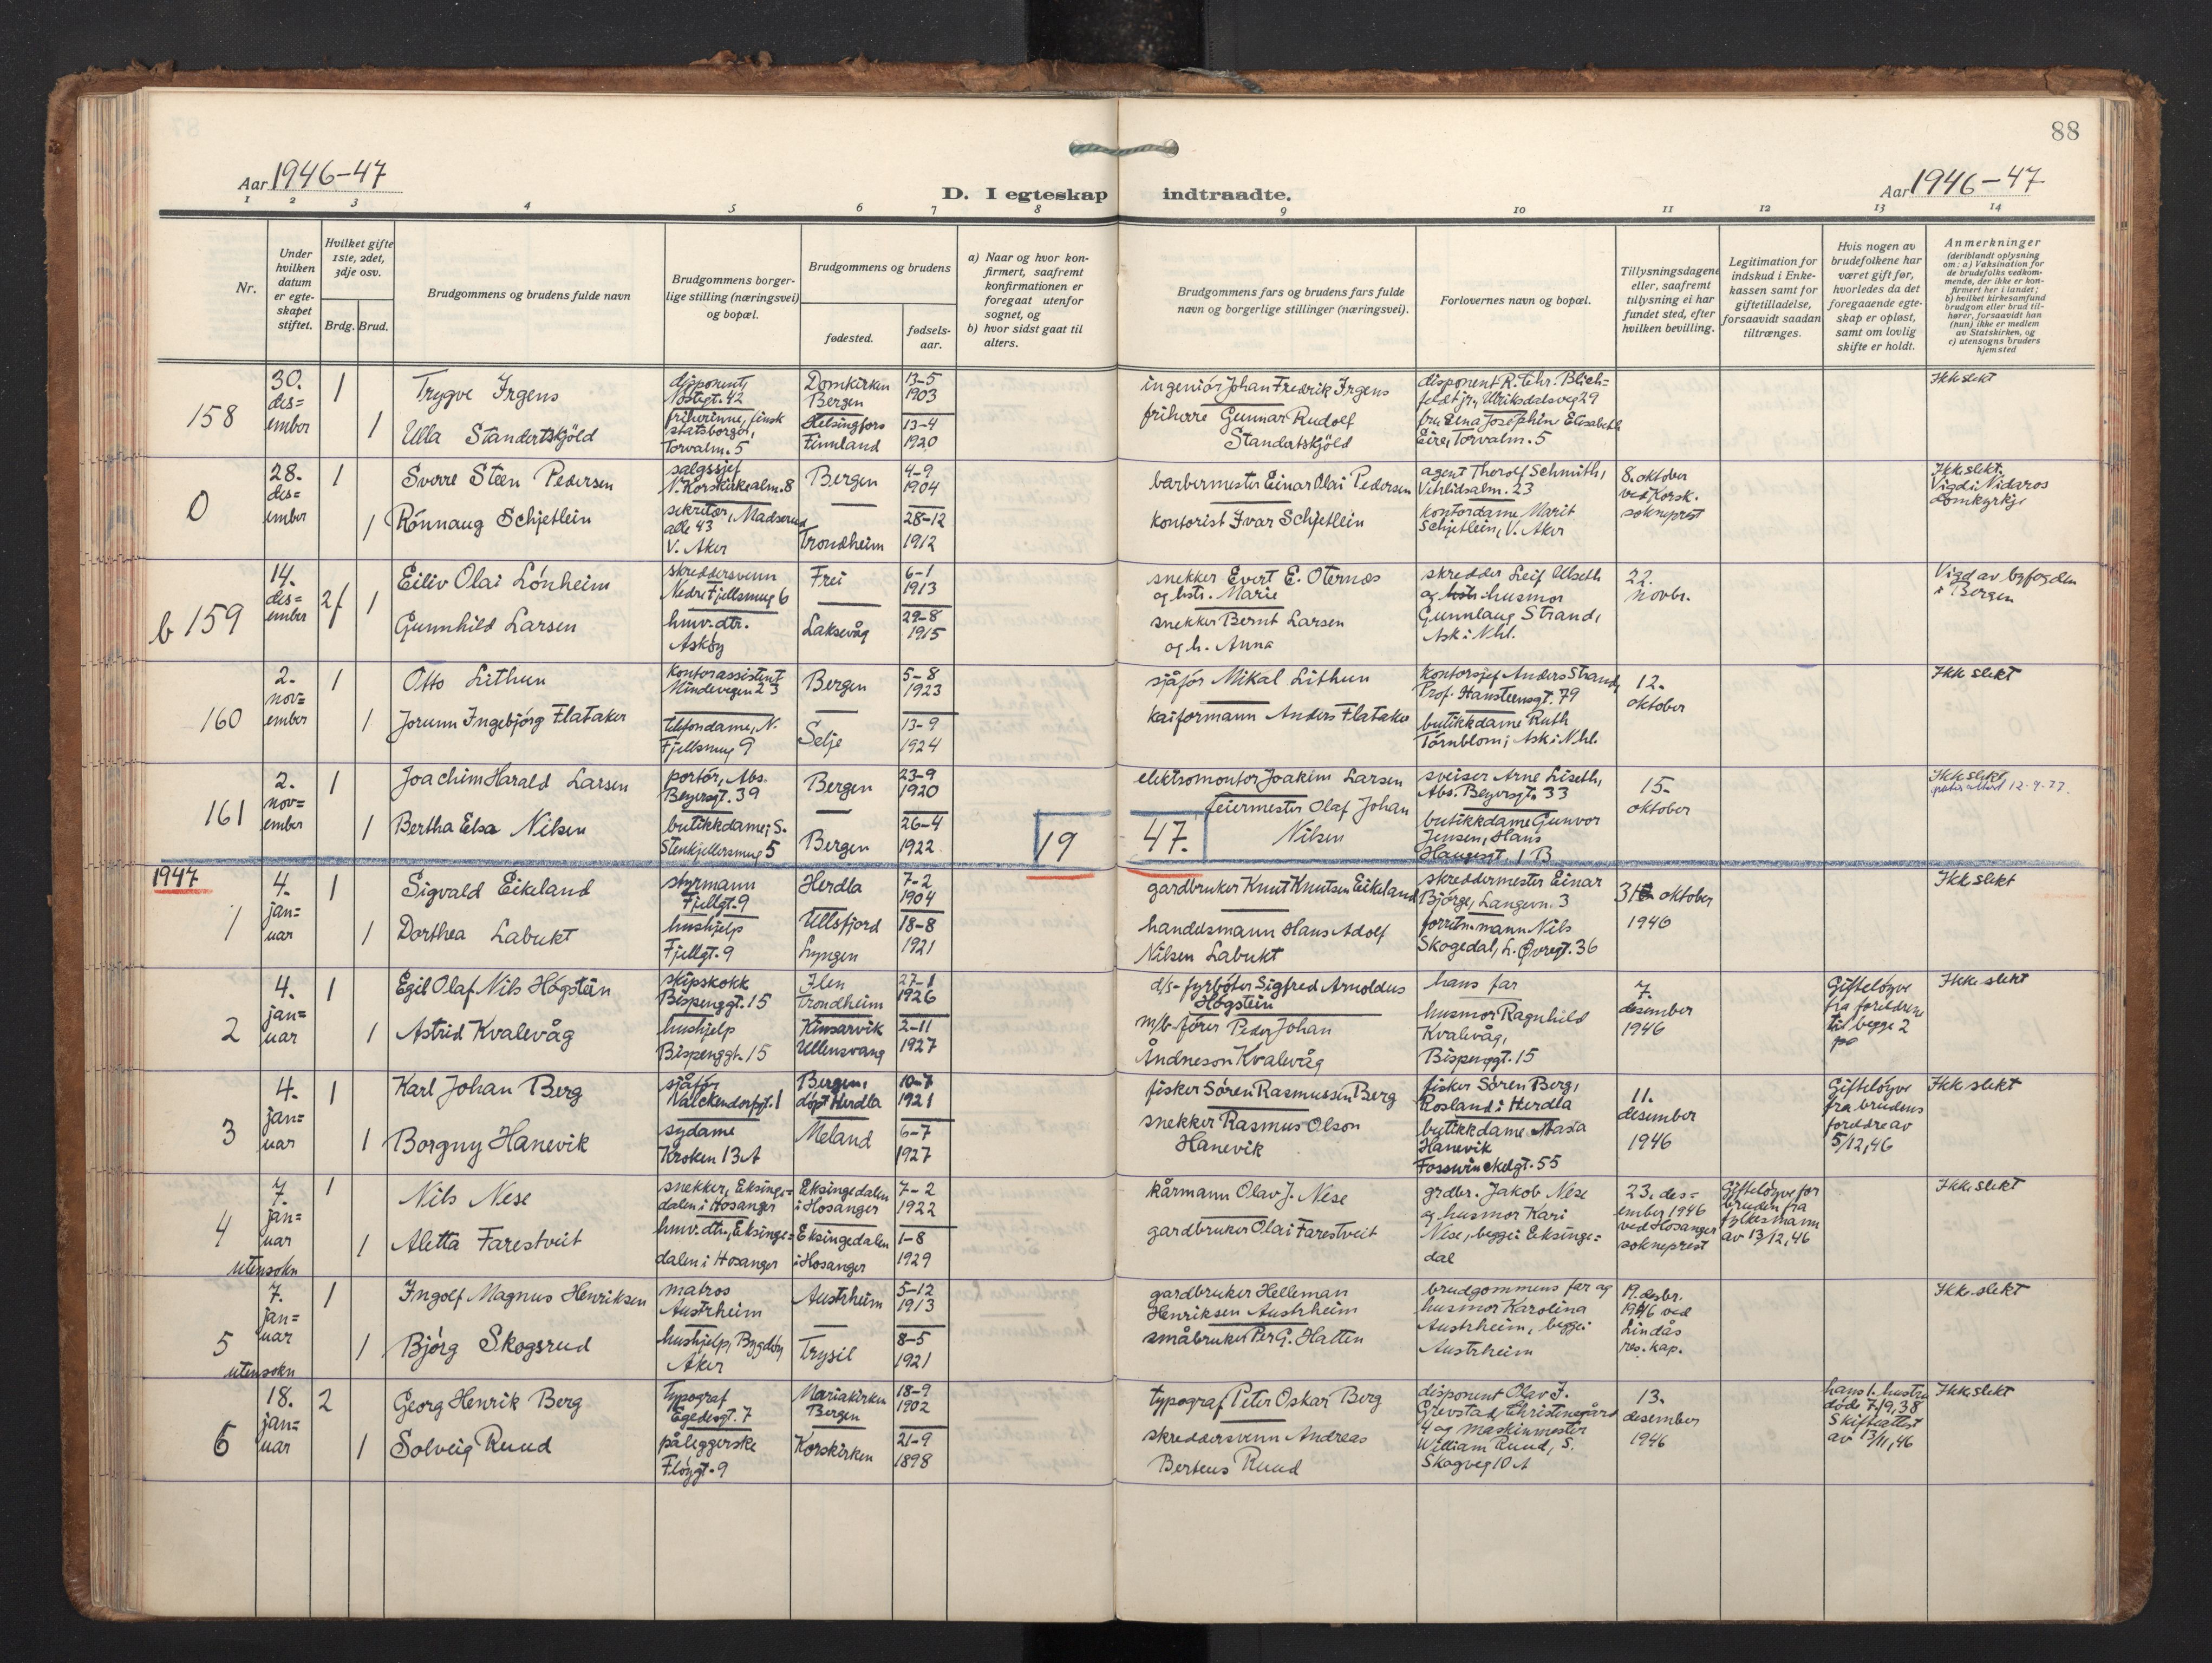 88
Aar 1946-47
D. I egteskap indtraadte.
Aar 1946-47
1 2 3 4 5 6 7 8 9 10 11 12 13 14
Nr.
Under
hvilken
datum
er egte-
skapet
stiftet.
Hvilket gifte
1ste, 2det,
3dje osv.
Brdg. Brud.
Brudgommens og brudens fulde navn
Brudgommens borger-
lige stilling (næringsvei)
og bopæl.
Brudgommens og brudens
fødested.
fødsels-
aar.
a) Naar og hvor kon-
firmert, saafremt
konfirmationen er
foregaat utenfor
sognet, og
b) hvor sidst gaat til
alters.
Brudgommens fars og brudens fars fulde
navn og borgerlige stillinger (næringsvei).
Forlovernes navn og bopæl.
Tillysningsdagene
eller, saafremt
tillysning ei har
fundet sted, efter
hvilken bevilling.
Legitimation for
indskud i Enke-
kassen samt for
giftetilladelse,
forsaavidt saadan
tiltrænges.
Hvis nogen av
brudefolkene har
været gift før,
hvorledes da det
foregaaende egte-
skap er opløst,
samt om lovlig
skifte er holdt.
Anmerkninger
(deriblandt oplysning
om: a) Vaksination for
de brudefolks vedkom-
mende, der ikke er kon-
firmert her i landet;
b) hvilket kirkesamfund
brudgom eller brud til-
hører, forsaavidt han
(hun) ikke er medlem
av Statskirken, og
c) utensogns bruders
hjemsted
158
30.
des=
ember
1
1
Trygve Irgens
Ulla Standertskjöld
disponent,
Nostegt. 42
friherinne, finsk
statsborger,
Torvalm. 5
Domkirken
Bergen
Helsingfors
Finnland
13-5
1903
13-4
1920
ingeniór Johan Fredrik Irgens
friherre Gunnar Rudolf
Standertskjöld
disponent R. Chr. Blich=
feldt jr., Ulriksdalsveg 29
fru Lina Josephin Elisabeth
Eire, Torvalm. 5
Ikke slekt
0
28.
des=
ember
1
1
Sverre Steen Pedersen
Rónnaug Schjetlein
salgssjef
N. Korskirkealm. 8
sekretær, Madserud
alle 43
V. Aker
Bergen
Trondheim
4-9
1904
28-12
1912
barbermester Einar Olai Pedersen
kontorist Ivar Schjetlein
agent Thorolf Schmith,
Vetrlidsalm. 23
kontordame Marit
Schjetlein, V. Aker
8. oktober
ved Korsk.
sokneprest
Ikke slekt.
Vigd i Nidaros
Domkyrkje
b 159
14.
des=
ember
2f
1
Eiliv Olai Lónheim
Gunnhild Larsen
skreddersvenn
Nedre Fjellsmug 6
hmv. dtr.
Askóy
Frei
Laksevåg
6-1
1913
29-8
1915
snekker Evert E. Oternes
og hstr. Marie
snekker Bernt Larsen
og h. Anna
skredder Leif Ulseth
og husmor
Gunnlaug Strand,
Ask i Nhl.
22.
novbr.
Vigd av byfogden
i Bergen
160
2.
nov=
ember
1
1
Otto Lithun
Jorunn Ingebjórg Flataker
kontorassistent
Mindevegen 23
telefondame, N.
Fjellsmug 9
Bergen
Selje
5-8
1923
13-9
1924
sjåfór Mikal Lithun
kaiformann Anders Flataker
kontorsjef Anders Strand,
Prof. Hansteensgt. 79
butikkdame Ruth
Tórnblom, Ask i Nhl.
12.
oktober
Ikke slekt
161
2.
nov=
ember
1
1
Joachim Harald Larsen
Bertha Elsa Nilsen
portór, Abs.
Beyersgt. 39
butikkdame, S.
Stenkjellersmug 5
Bergen
Bergen
23-9
1920
26-4
1922
elektromontor Joakim Larsen
feiermester Olaf Johan
Nilsen
sveiser Arne Liseth,
Abs. Beyersgt. 33
butikkdame Gunvor
Jensen, Hans
Haugesgt. 1 B
15.
oktober
Ikke slekt
19 47.
1947
1
4.
jan=
uar
1
1
Sigvald Eikeland
Dorthea Labukt
styrmann
Fjellgt. 9
hushjelp
Fjellgt. 9
Herdla
Ullsfjord
Lyngen
7-2
1904
18-8
1921
gardbruker Knut Knutsen Eikeland
handelsmann Hans Adolf
Nilsen Labukt
skreddermester Einar
Bjórge, Langevn. 3
forretn.mann Nils
Skogedal, L. Óvregt. 36
31 oktober
1946
Ikke slekt
2
4.
jan=
uar
1
1
Egil Olaf Nils Hógstein
Astrid Kvalevåg
skipskokk
Bispenggt. 15
hushjelp
Bispenggt. 15
Ilen
Trondheim
Kinsarvik
Ullensvang
27-1
1926
2-11
1927
d/s- fyrbóter Sigfred Arnoldus
Hógstein
m/b fórer Peder Johan
Åndneson Kvalevåg
hans far
husmor Ragnhild
Kvalevåg,
Bispenggt. 15
7.
desember
1946
Giftelóyve
fra foreldrene
til begge 2
Ikke slekt
3
4.
jan=
uar
1
1
Karl Johan Berg
Borgny Hanevik
sjåfór
Valckendorfsgt. 1
sydame
Kroken 13A
Bergen,
dópt Herdla
Meland
10-7
1921
6-7
1927
fisker Sóren Rasmussen Berg
snekker Rasmus Olson
Hanevik
fisker Sóren Berg,
Rosland i Herdla
butikkdame Aasta
Hanevik
Fosswinckelgt. 55
11.
desember
1946
Giftelóyve
fra brudens
foreldre av
5/12,46
Ikke slekt
4
utensokn
7.
jan=
uar
1
1
Nils Nese
Aletta Farestveit
snekker, Eksinge=
dalen i Hosanger
hmv. dtr., Eksinge=
dalen i Hosanger
Eksingedalen
i Hosanger
Eksingedalen
i Hosanger
7-2
1922
1-8
1929
kårmann Olav J. Nese
gardbruker Olai Farestveit
grdbr. Jakob Nese
og husmor Kari
Nese, begge i Eksinge=
dal
23. des=
ember 1946
ved Hosanger
sokneprest
Giftelóyve for
bruden fra
fylkesmann
av 13/12,46
Ikke slekt
5
utensokn
7.
jan=
uar
1
1
Ingolf Magnus Henriksen
Bjórg Skogsrud
matros
Austrheim
hushjelp, Bygdóy
Aker
Austrheim
Trysil
5-12
1913
8-5
1921
gardbruker Helleman
Henriksen Austrheim
småbruker Per G. Hatten
brudgommens far og
husmor Karolina
Austrheim, begge i
Austrheim
19. desbr.
1946 ved
Lindås
res. kap.
Ikke slekt
6
18.
jan=
uar
2
1
Georg Henrik Berg
Solveig Ruud
Typograf
Egedesgt. 7
påleggerske
Flóygt. 9
Mariakirken
Bergen
Korskirken
18-9
1902
21-9
1898
typograf Peter Oskar Berg
skreddersvenn Andreas
Berteus Ruud
disponent Olav J.
Grevstad, Christinegård
4 og maskinmester
William Ruud, S.
Skogveg 10 A
13.
desember
1946
hans 1. hustru
döde 7/9,38
Skifteattest
av 13/11,46
Ikke slekt